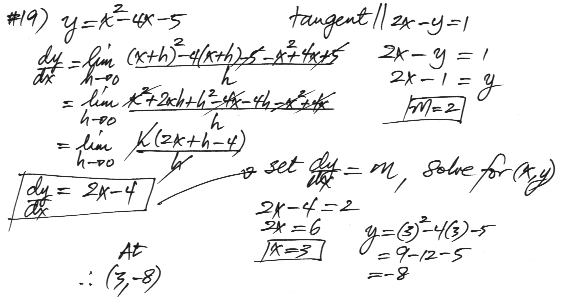 #19) y = x² - 4x - 5
tangent // 2x - y = 1
dy/dx = lim h→0 ((x+h)² - 4(x+h) - 5 - x² + 4x + 5)/h
2x - y = 1
2x - 1 = y
m = 2
= lim h→0 (x² + 2xh + h² - 4x - 4h - x² + 4x)/h
= lim h→0 h(2x + h - 4)/h
dy/dx = 2x - 4
→ set dy/dx = m, solve for (x,y)
2x - 4 = 2
2x = 6
x = 3
y = (3)² - 4(3) - 5
= 9 - 12 - 5
= -8
At
∴ (3, -8)